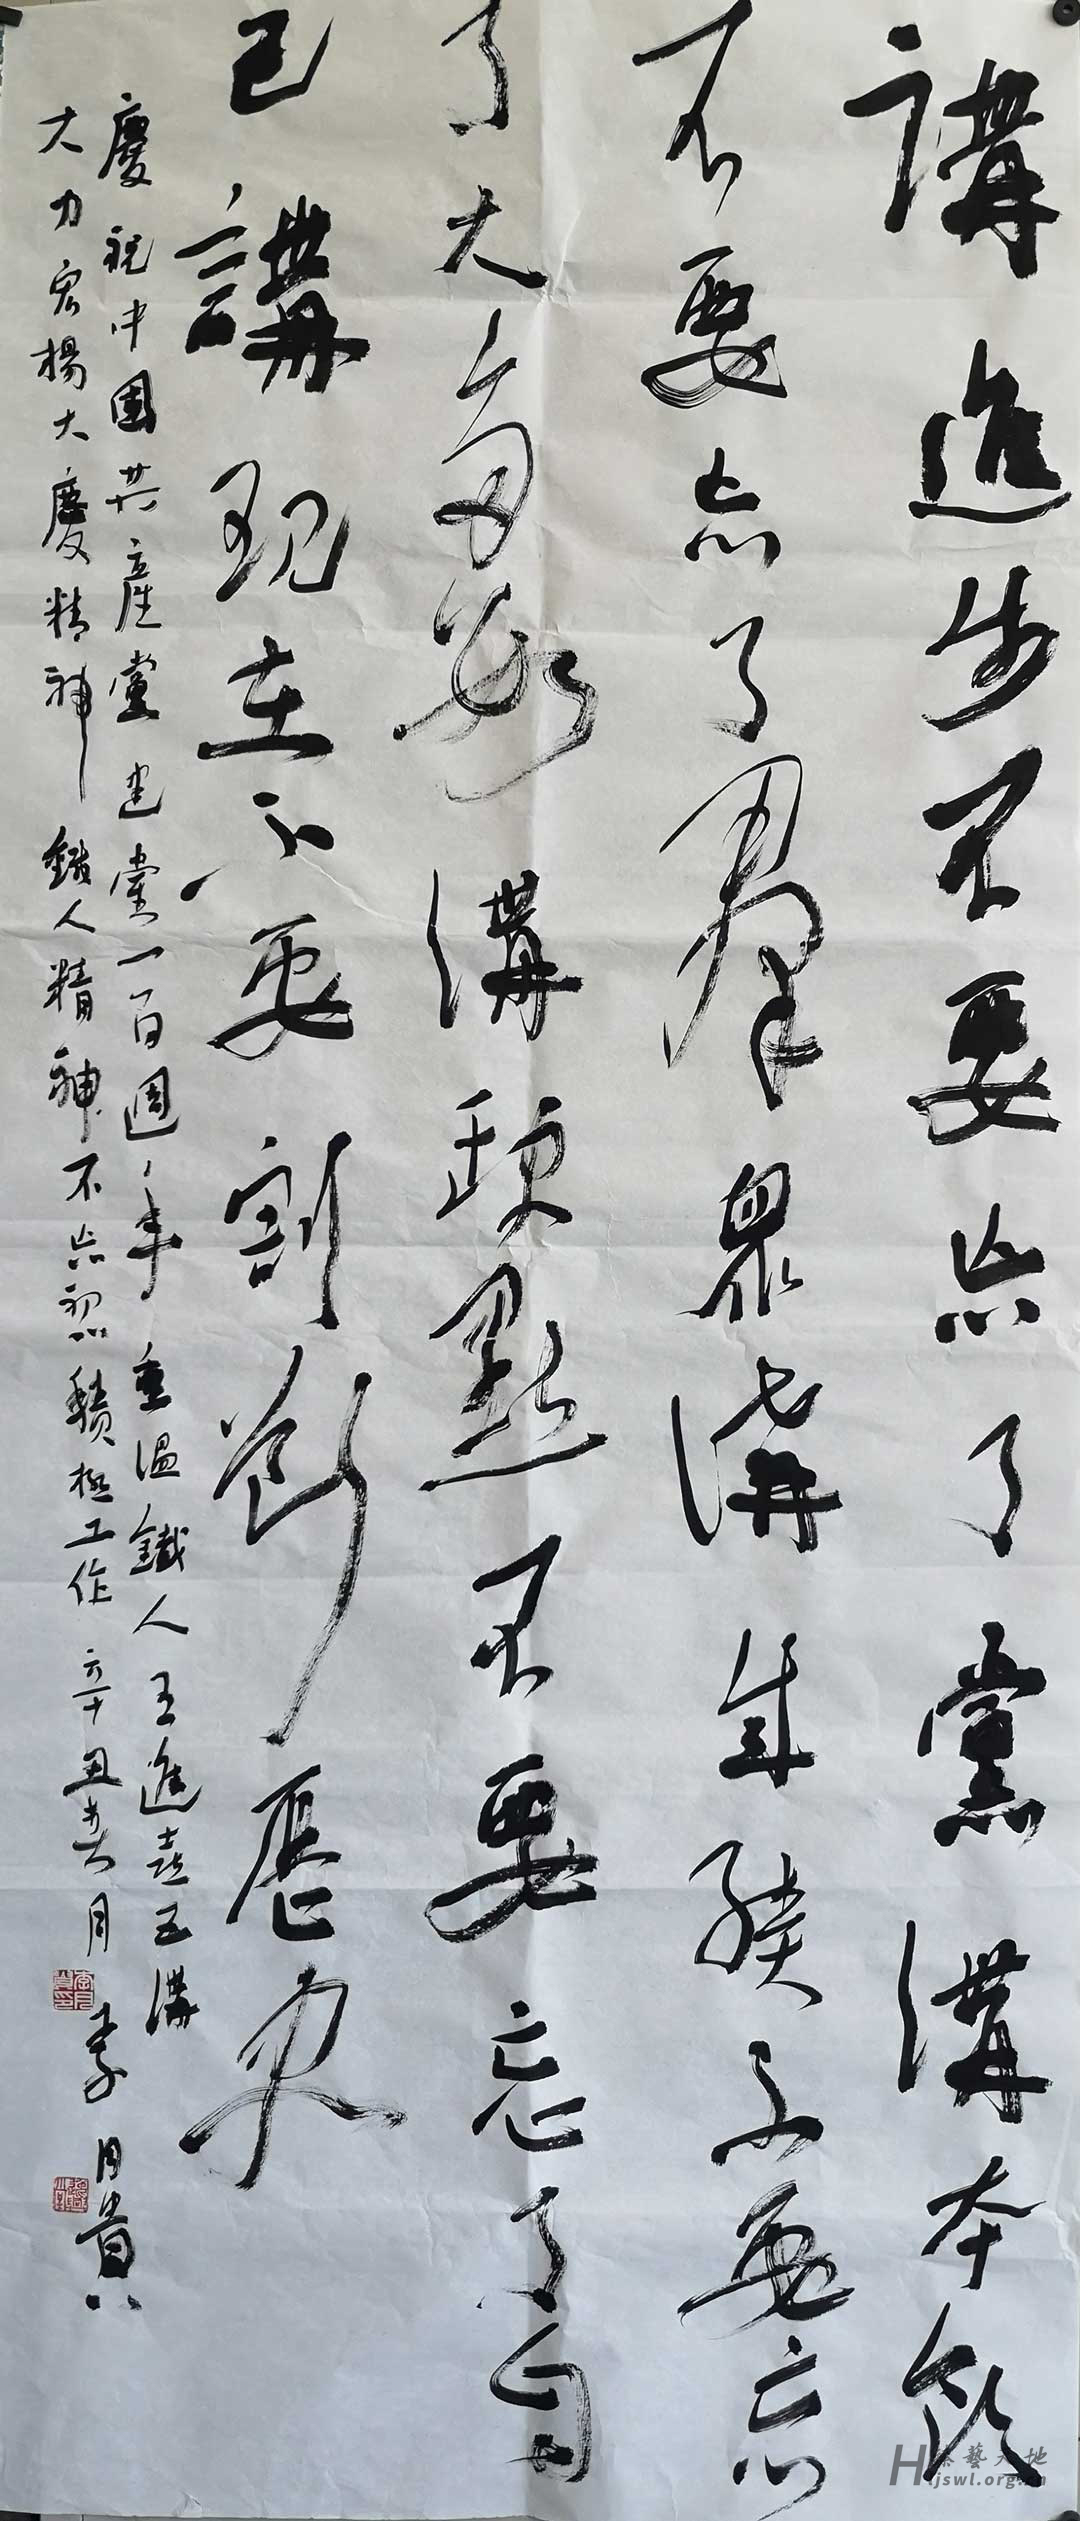 講進步不要忘了黨講本領
不要忘了羣眾講成績不要忘
了大多數講缺點不要忘了自
己講現在不要割斷歷史
慶祝中國共產黨建黨一百週年重温鐵人王進喜五講
大力宏楊大慶精神鐵人精神不忘初心積極工作辛丑年月李月貴
藝天地
ijswl.org.cn